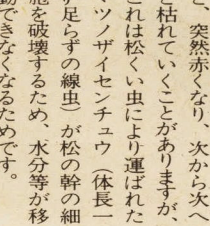 、突然赤くなり、次から次へ
枯れていくことがありますが、
これは松くい虫により運ばれた
マツノザイセンチュウ（体長一
足らずの線虫）が松の幹の細
胞を破壊するため、水分等が移
動できなくなるためです。